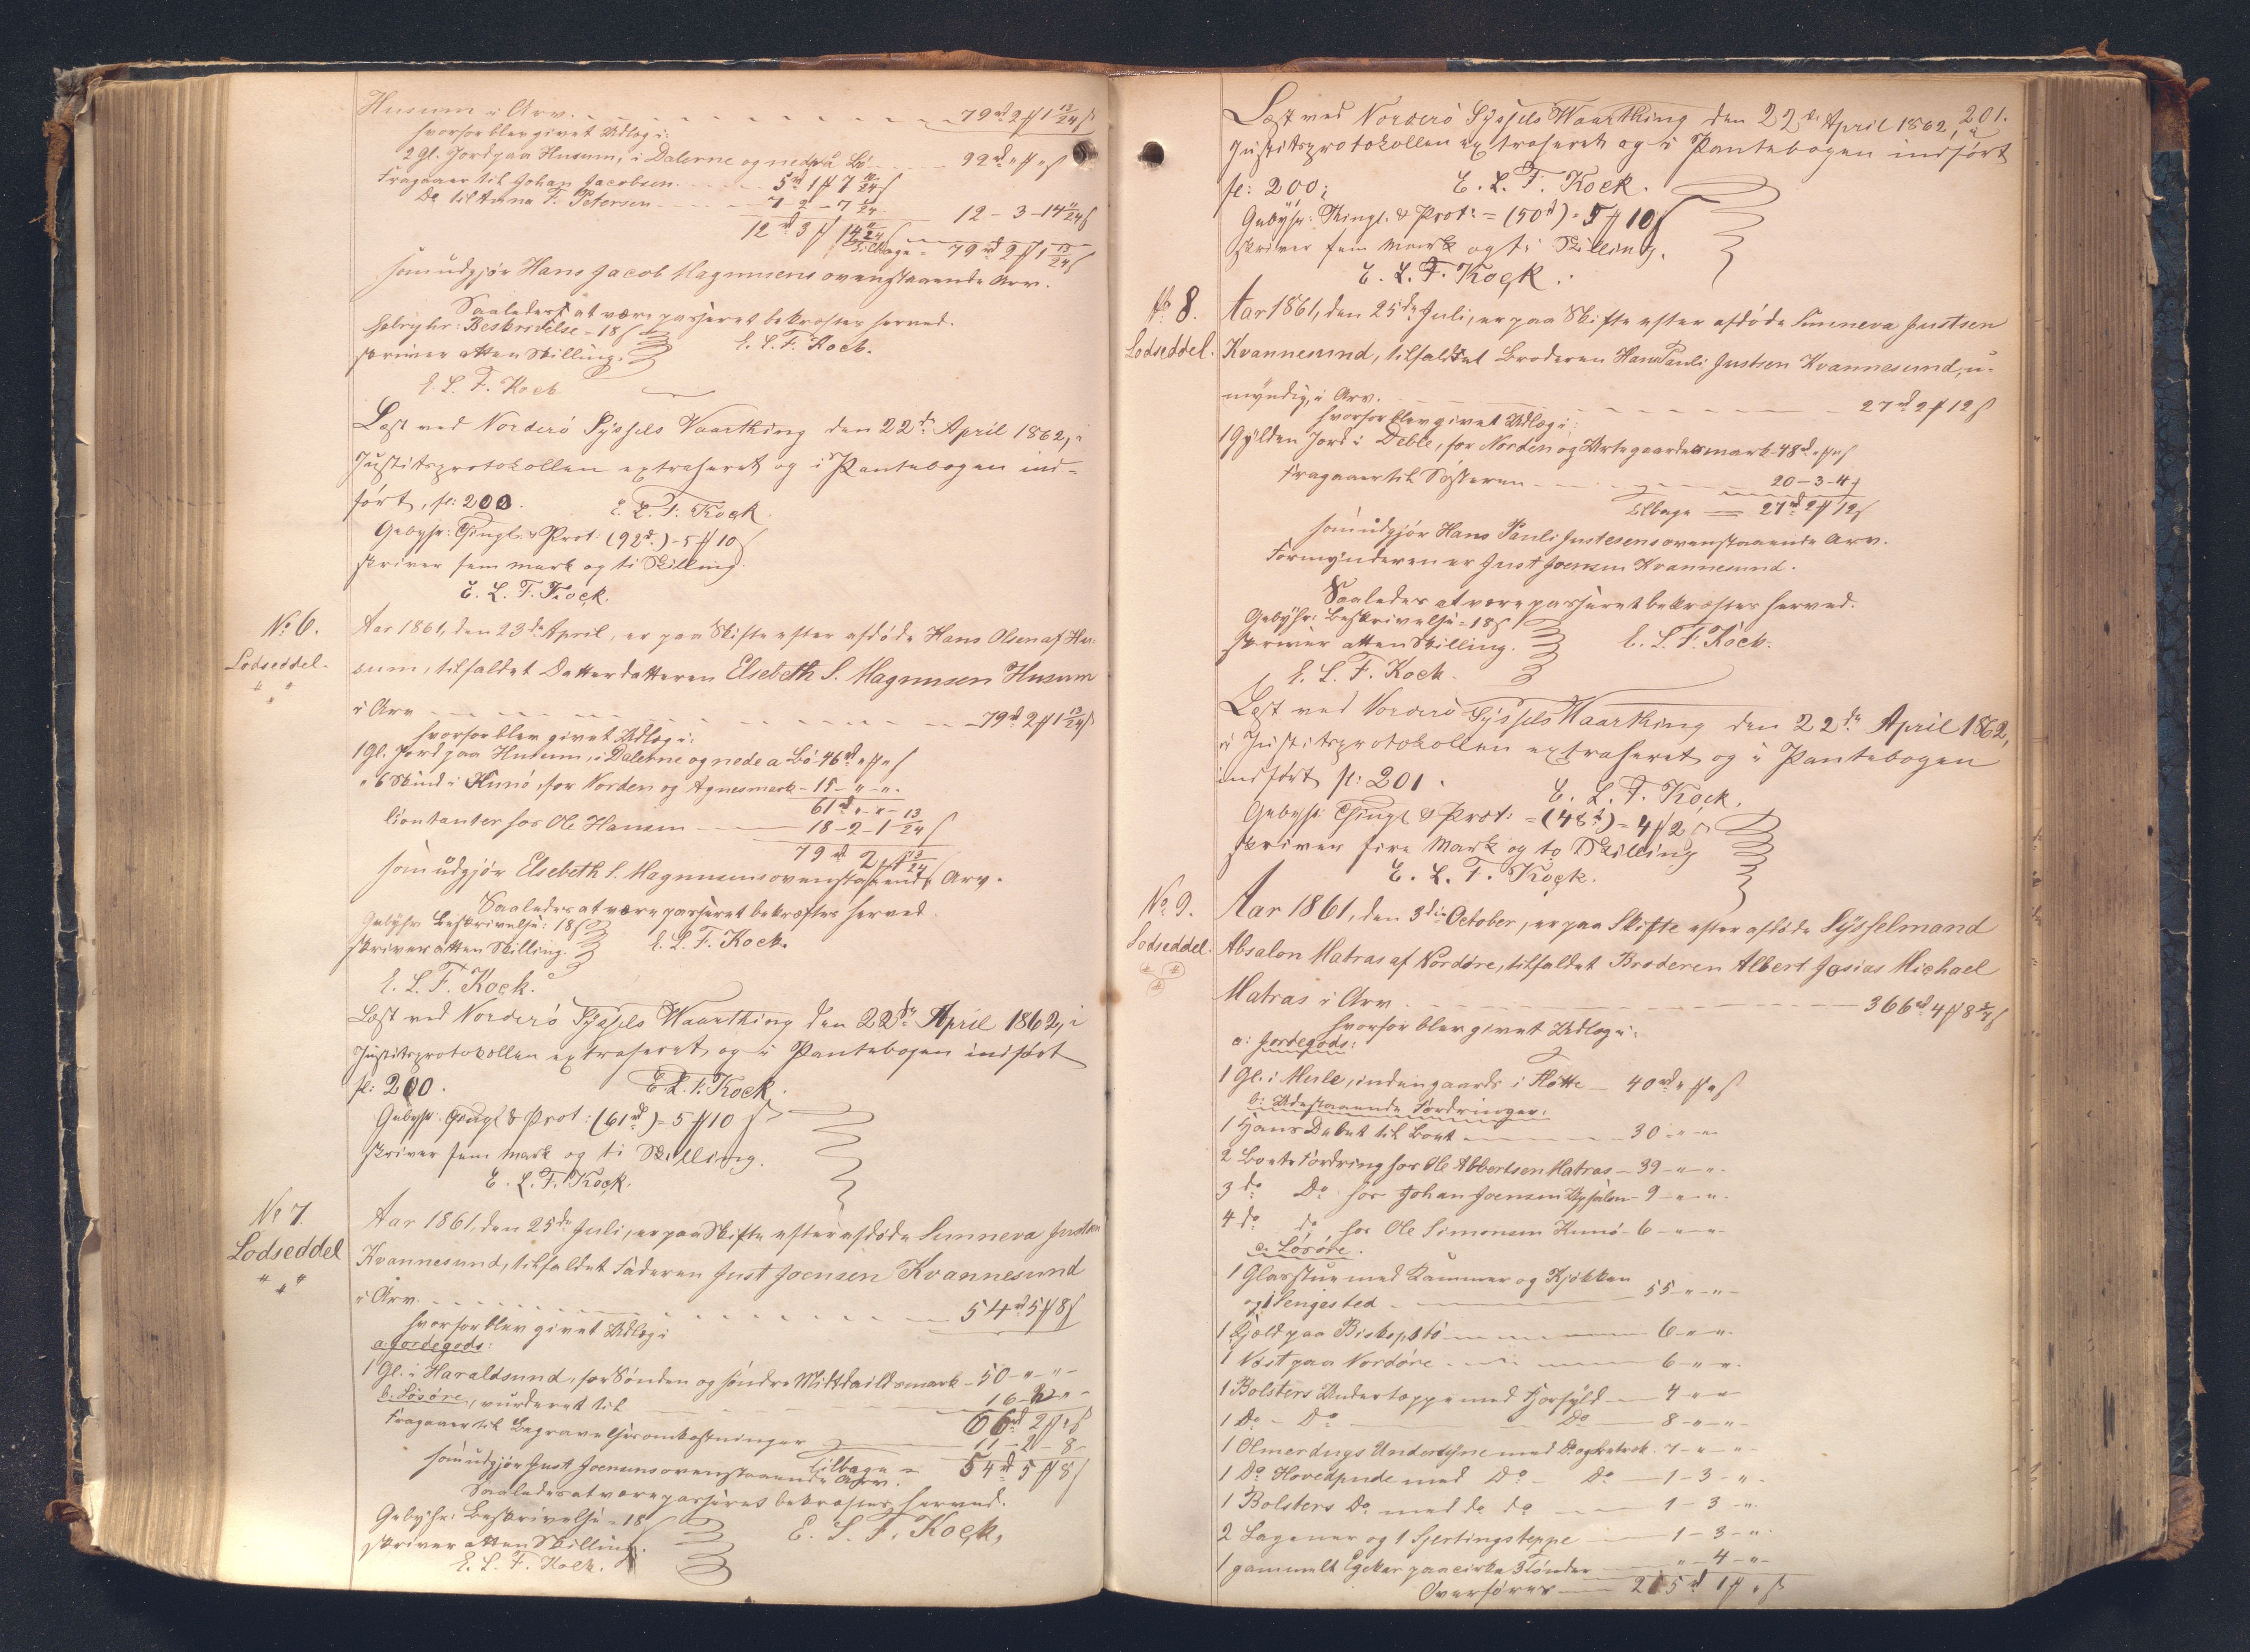 Husum i Arv. 79 rd 2 ₰ 1 13/24 ß
hvorfor blev givet Udlæg i:
2 Gl. Jord paa Husum, i Dalerne og nedpaa Bø 92 rd " ₰ " ß
Fragaaer til Johan Jacobsen 5 rd 1 ₰ 7 ß
Do til Anna F. Petersen 7 - 2 - 7
12 rd 3 ₰ 14 11/24 ß 12 - 3 - 14 11/24 ß
Tilbage = 79 rd 2 ₰ 1 13/24 ß
som udgjør Hans Jacob Magnusens ovenstaaende Arv.
Saaledes at være passeret bekræftes herved.
Gebyhr: Beskrivelse = 18 ß
skriver atten Skilling. E. L. F. Kock.
E. L. F. Kock
Læst ved Norderø Syssels Vaarthing den 22de April 1862, i
Justitsprotokollen extraheret og i Pantebogen ind-
ført, fl: 200. E. L. F. Kock.
Gebyhr: Thingl. & Prot: (92 rd.) - 5 ₰ 10 ß
skriver fem mark og ti Skilling.
E. L. F. Kock.
No 6.
Lodseddel.
Aar 1861, den 23de April, er paa Skifte efter afdøde Hans Olsen af Hu-
sum, tilfaldet Datterdatteren Elsebeth S. Magnusen Husum
i Arv 79 rd 2 ₰ 1 13/24 ß
hvorfor blev givet Udlæg i:
1 Gl. Jord paa Husum, i Dalerne og nede a Bø 46 rd " ₰ " ß
" 6 Skind i Kunø, for Norden og Agnesmark - 15 - " - "
61 rd " - " -
Contanter hos Ole Hansen 18 - 2 - 1 13/24 ß
79 rd 2 ₰ 1 13/24
som udgjør Elsebeth S. Magnusens ovenstaaende Arv.
Saaledes at være passeret bekræftes herved.
Gebyhr Beskrivelse: 18 ß
skriver atten Skilling. E. L. F. Kock.
E. L. F. Kock.
Læst ved Norderø Syssels Vaarthing den 22de April 1862, i
Justitsprotokollen extraheret og i Pantebogen indført
fl: 200. E. L. F. Kock.
Gebyhr: Thingl & Prot: (61 rd) = 5 ₰ 10 ß
skriver fem mark og ti Skilling.
E. L. F. Kock.
No 7.
Lodseddel
Aar 1861, den 25de Juli, er paa Skifte efter afdøde Sunneva Justsen
Kvannesund, tilfaldet Faderen Just Joensen Kvannesund
i Arv. 54 rd 5 ₰ 8 ß
hvorfor blev givet Udlæg i
a. Jordegods:
1 Gl. i Haraldsund, for Sønden og søndre Mittdaildsmark - 50 - " - " -
b. Løsøre, vurderet til 16 - 2 - " -
66 rd 2 ₰ " ß
Fragaaer til Begravelsesomkostninger 11 - 2 - 8 -
Tilbage = 54 rd 5 ₰ 8 ß
som udgjør Just Joensens ovenstaaende Arv.
Saaledes at være passeret bekræftes herved.
Gebyhr: Beskrivelse = 18 ß
skriver atten Skilling. E. L. F. Kock.
E. L. F. Kock.
201.
Læst ved Norderø Syssels Vaarthing den 22de April 1862, i
Justitsprotokollen extraheret og i Pantebogen indført
fl: 200; E. L. F. Kock.
Gebyhr: Thingl. & Prot: = (50 rd) = 5 ₰ 10 ß
skriver fem mark og ti Skilling.
E. L. F. Kock.
No 8.
Lodseddel.
Aar 1861, den 25de Juli, er paa Skifte efter afdøde Sunneva Justsen
Kvannesund, tilfaldet Broderen Hans Pauli Justsen Kvannesund, u-
myndig, i Arv. 27 rd 2 ₰ 12 ß
hvorfor blev givet Udlæg i:
1 Gylden Jord i Deble, for Norden og Urtegaardsmark - 48 rd " ₰ " ß
Fragaaer til Søsteren 20 - 3 - 4 ß
Tilbage = 27 rd 2 ₰ 12 ß
som udgjør Hans Pauli Justesens ovenstaaende Arv.
Formynderen er Just Joensen Kvannesund.
Saaledes at være passeret bekræftes herved.
Gebyhr: Beskrivelse = 18 ß
skriver atten Skilling. E. L. F. Kock.
E. L. F. Kock.
Læst ved Norderø Syssels Vaarthing den 22de April 1862,
i Justitsprotokollen extraheret og i Pantebogen
indført fl: 201. E. L. F. Kock.
Gebyhr Thingl & Prot: = (48 rd) = 4 ₰ 2 ß
skriver fire Mark og to Skilling
E. L. F. Kock.
No 9.
Lodseddel.
Aar 1861, den 3die October, er paa Skifte efter afdøde Sysselmand
Absalon Matras af Nordøre, tilfaldet Broderen Albert Josias Michael
Matras i Arv 366 rd 4 ₰ 8 ß
hvorfor blev givet Udlæg i:
a: Jordegods:
1 Gl. i Mule, indengaards i Fløtte - 40 rd " ₰ " ß
b: Udestaaende Fordringer:
1 Hans Debet til Boet 30 - " - "
2 Boets Fordring hos Ole Abbertsen Matras - 39 - " - "
3 do Do hos Johan Joensen - 9 - " - "
4 do do hos Ole Simonsen Kunø - 6 - " - "
c. Løsøre.
1 Glasstue med Kammer og Kjøkken
og 1 Sengested 55 - " - "
1 Hjold paa Biskopstø 6 - " - "
1 Nøst paa Nordøre 6 - " - "
1 Bolsters Undertæppe med Fjerfyld 4 - " - "
1 Do - Do Do 8 - " - "
1 Olmerdugs Underdyne med Do 7 - " - "
1 Do Hovedpude med Do - Do - 1 - 3 - "
1 Bolsters Do med do do 1 - 3 - "
2 Lagener og 1 Hjertingsteppe 1 - 3 - "
1 gammelt Egekar paa cirka 3 Tønder " - 4 - "
Overføres 215 rd 1 ₰ " ß